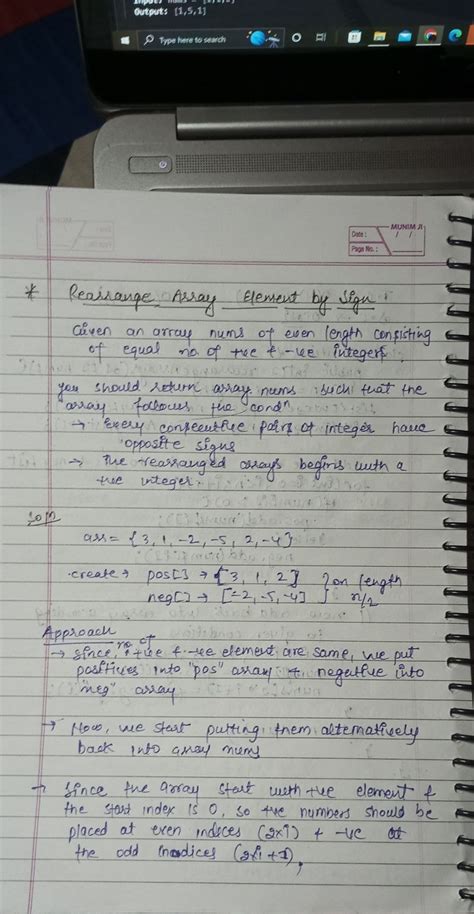 Output: [1,5,1]
Type here to search
MUNIM JI
Date: / /
Page No.:
* Rearrange Array Element by Sign
Given an array nums of even length consisting
of equal no of +ve & -ve integers
you should return array nums such that the
array follows the condn
→ Every consecutive pair of integer have
opposite signs
→ The rearranged arrays begins with a
+ve integer.
Soln
arr = {3, 1, -2, -5, 2, -4}
create → pos[] → {3, 1, 2} } on length
neg[] → {-2, -5, -4} } n/2
Approach
→ Since, no of +ve & -ve element are same, we put
positives into "pos" array & negative into
"neg" array
→ Now, we start putting them alternatively
back into array nums
→ Since the array start with +ve element &
the start index is 0, so +ve numbers should be
placed at even indices (2xi) & -ve at
the odd indices (2xi+1),